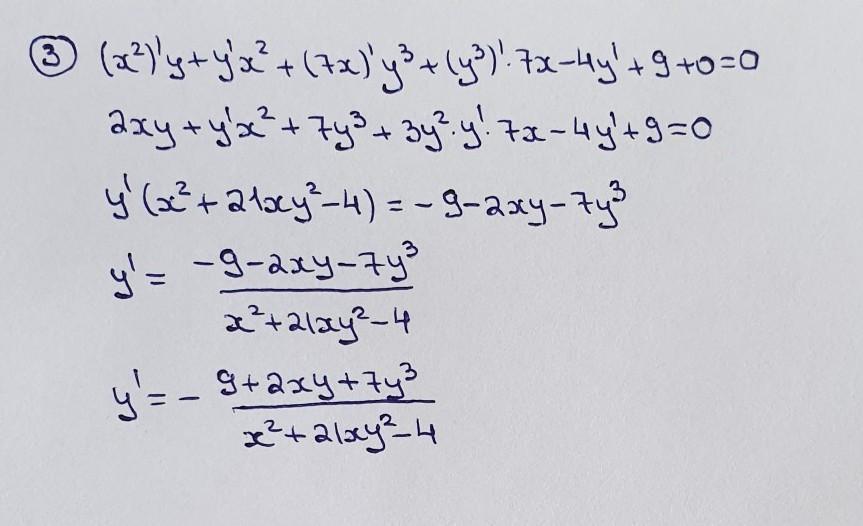 ③ (x²)'y+y'x²+(7x)'y³+(y³)'·7x-4y'+9+0=0
2xy+y'x²+7y³+3y²·y'·7x-4y'+9=0
y'(x²+21xy²-4)=-9-2xy-7y³
y'= \frac{-9-2xy-7y³}{x²+21xy²-4}
y'=- \frac{9+2xy+7y³}{x²+21xy²-4}